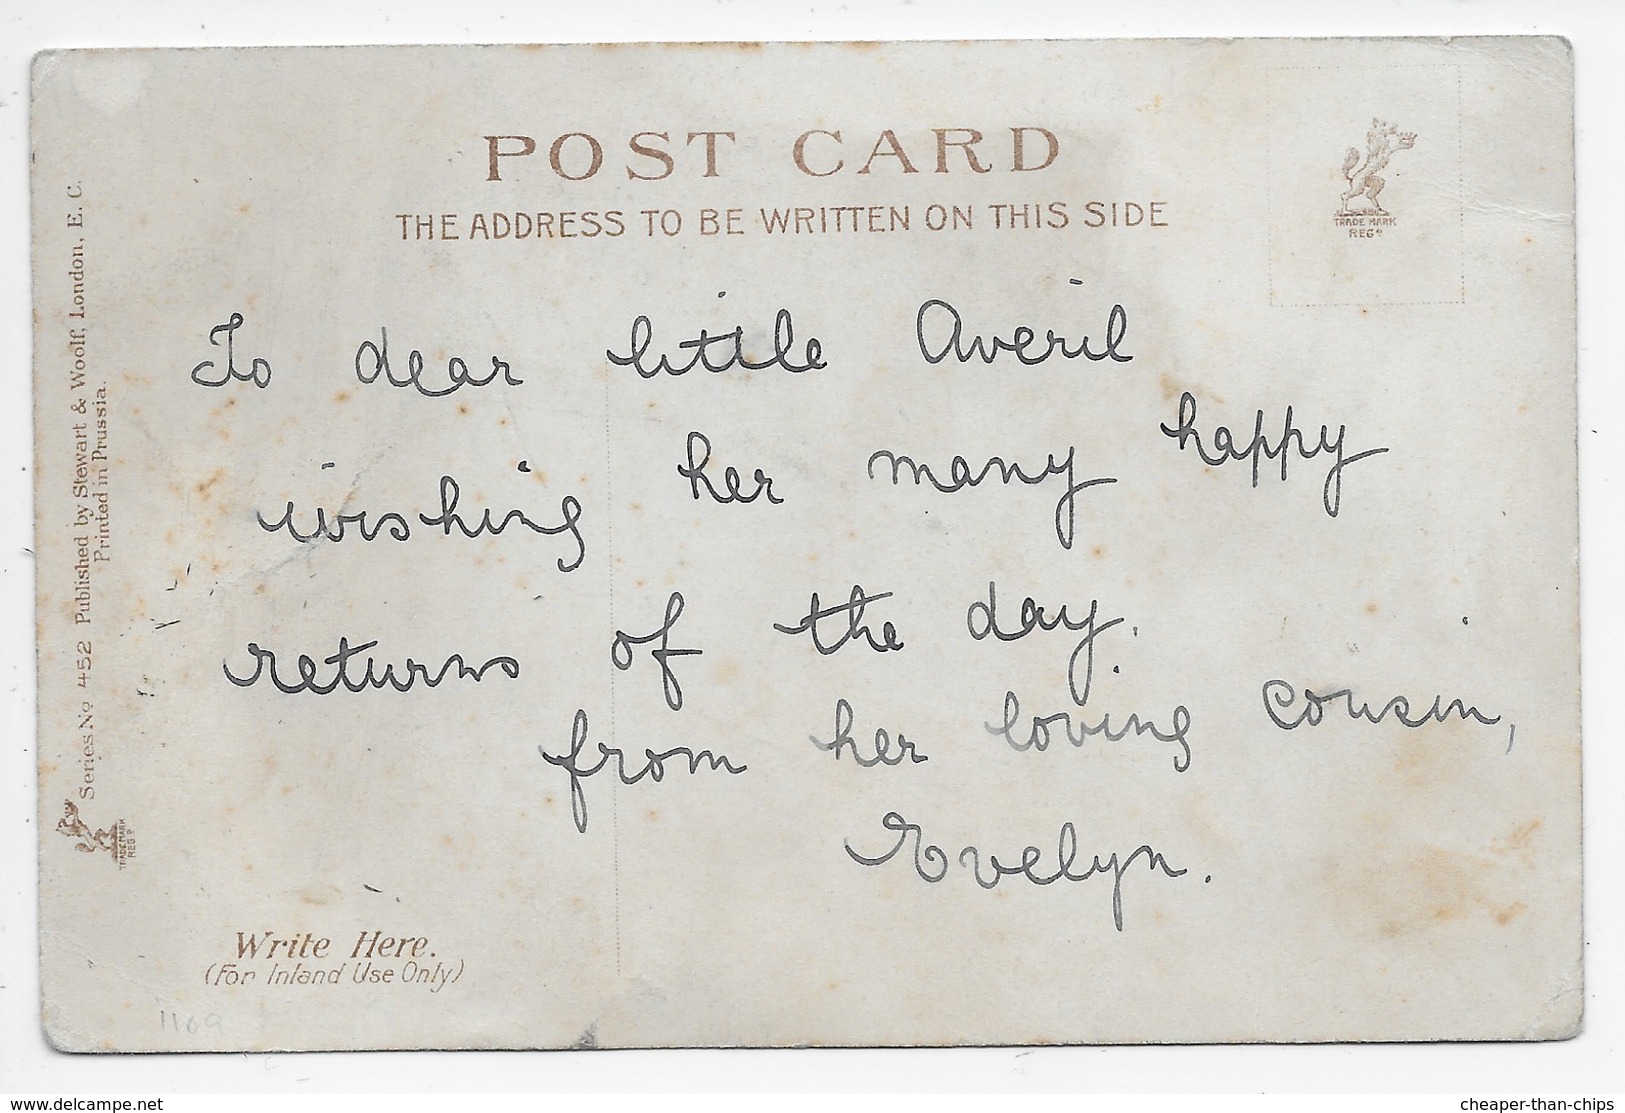 POST CARD
THE ADDRESS TO BE WRITTEN ON THIS SIDE
TRADE MARK
REGD
To dear little Averil
wishing her many happy
returns of the day.
from her loving cousin,
Evelyn.
Series No 452 Published by Stewart & Woolf, London, E. C.
Printed in Prussia.
TRADE MARK
REGD
Write Here.
(For Inland Use Only)
1109
www.delcampe.net
cheaper-than-chips